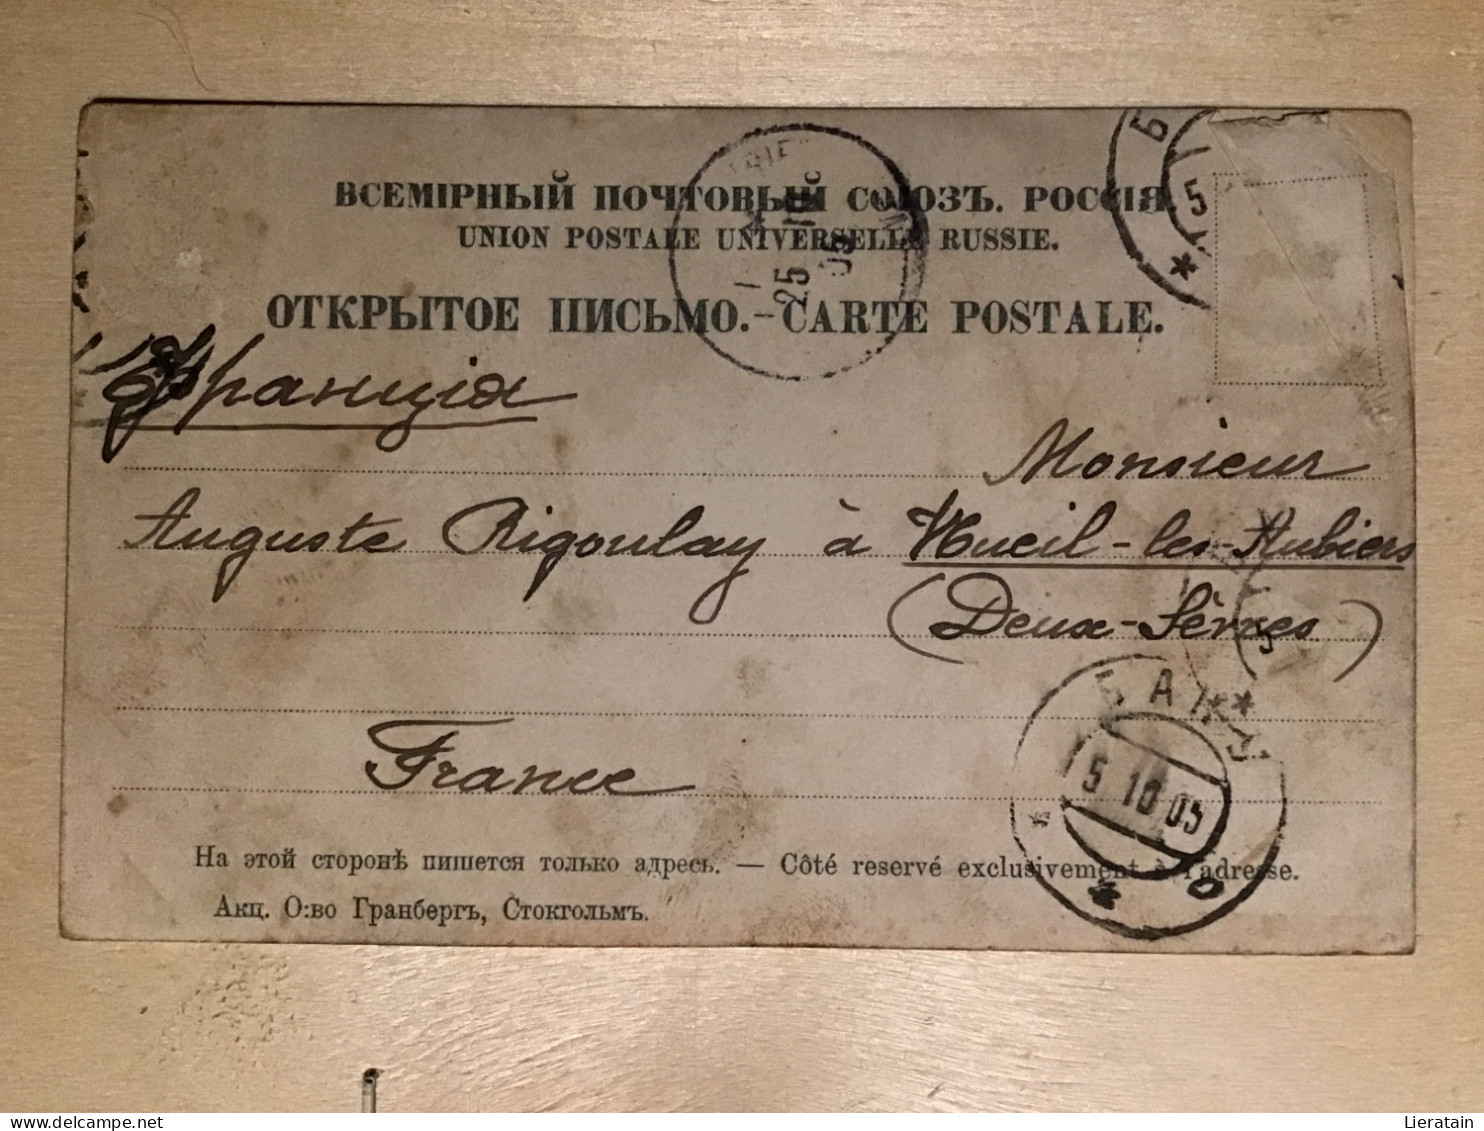 ВСЕМІРНЫЙ ПОЧТОВЫЙ СОЮЗЪ. РОССІЯ
UNION POSTALE UNIVERSELLE RUSSIE.
ОТКРЫТОЕ ПИСЬМО.-CARTE POSTALE.
25 11 05
Б
5
Франція
Monsieur
Auguste Rigoulay à Nueil-les-Aubiers
(Deux-Sèvres)
France
БАКУ
5 10 05
На этой сторонѣ пишется только адресь. — Côté reservé exclusivement à l'adresse.
Акц. О:во Гранбергъ, Стокгольмъ.
Lieratain